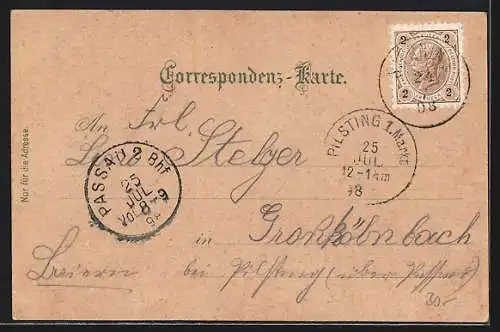 2 2
2 2
24
98
Correspondenz-Karte.
An Frl.
PILSTING I. Markt
25
JUL
12-1 Nm
98
Stelzer
PASSAU 2 Bhf
25
JUL
Vor 8-9
98
Nur für die Adresse.
in Großköllnbach
Baiern bei Pilsting (über Passau)
30.-